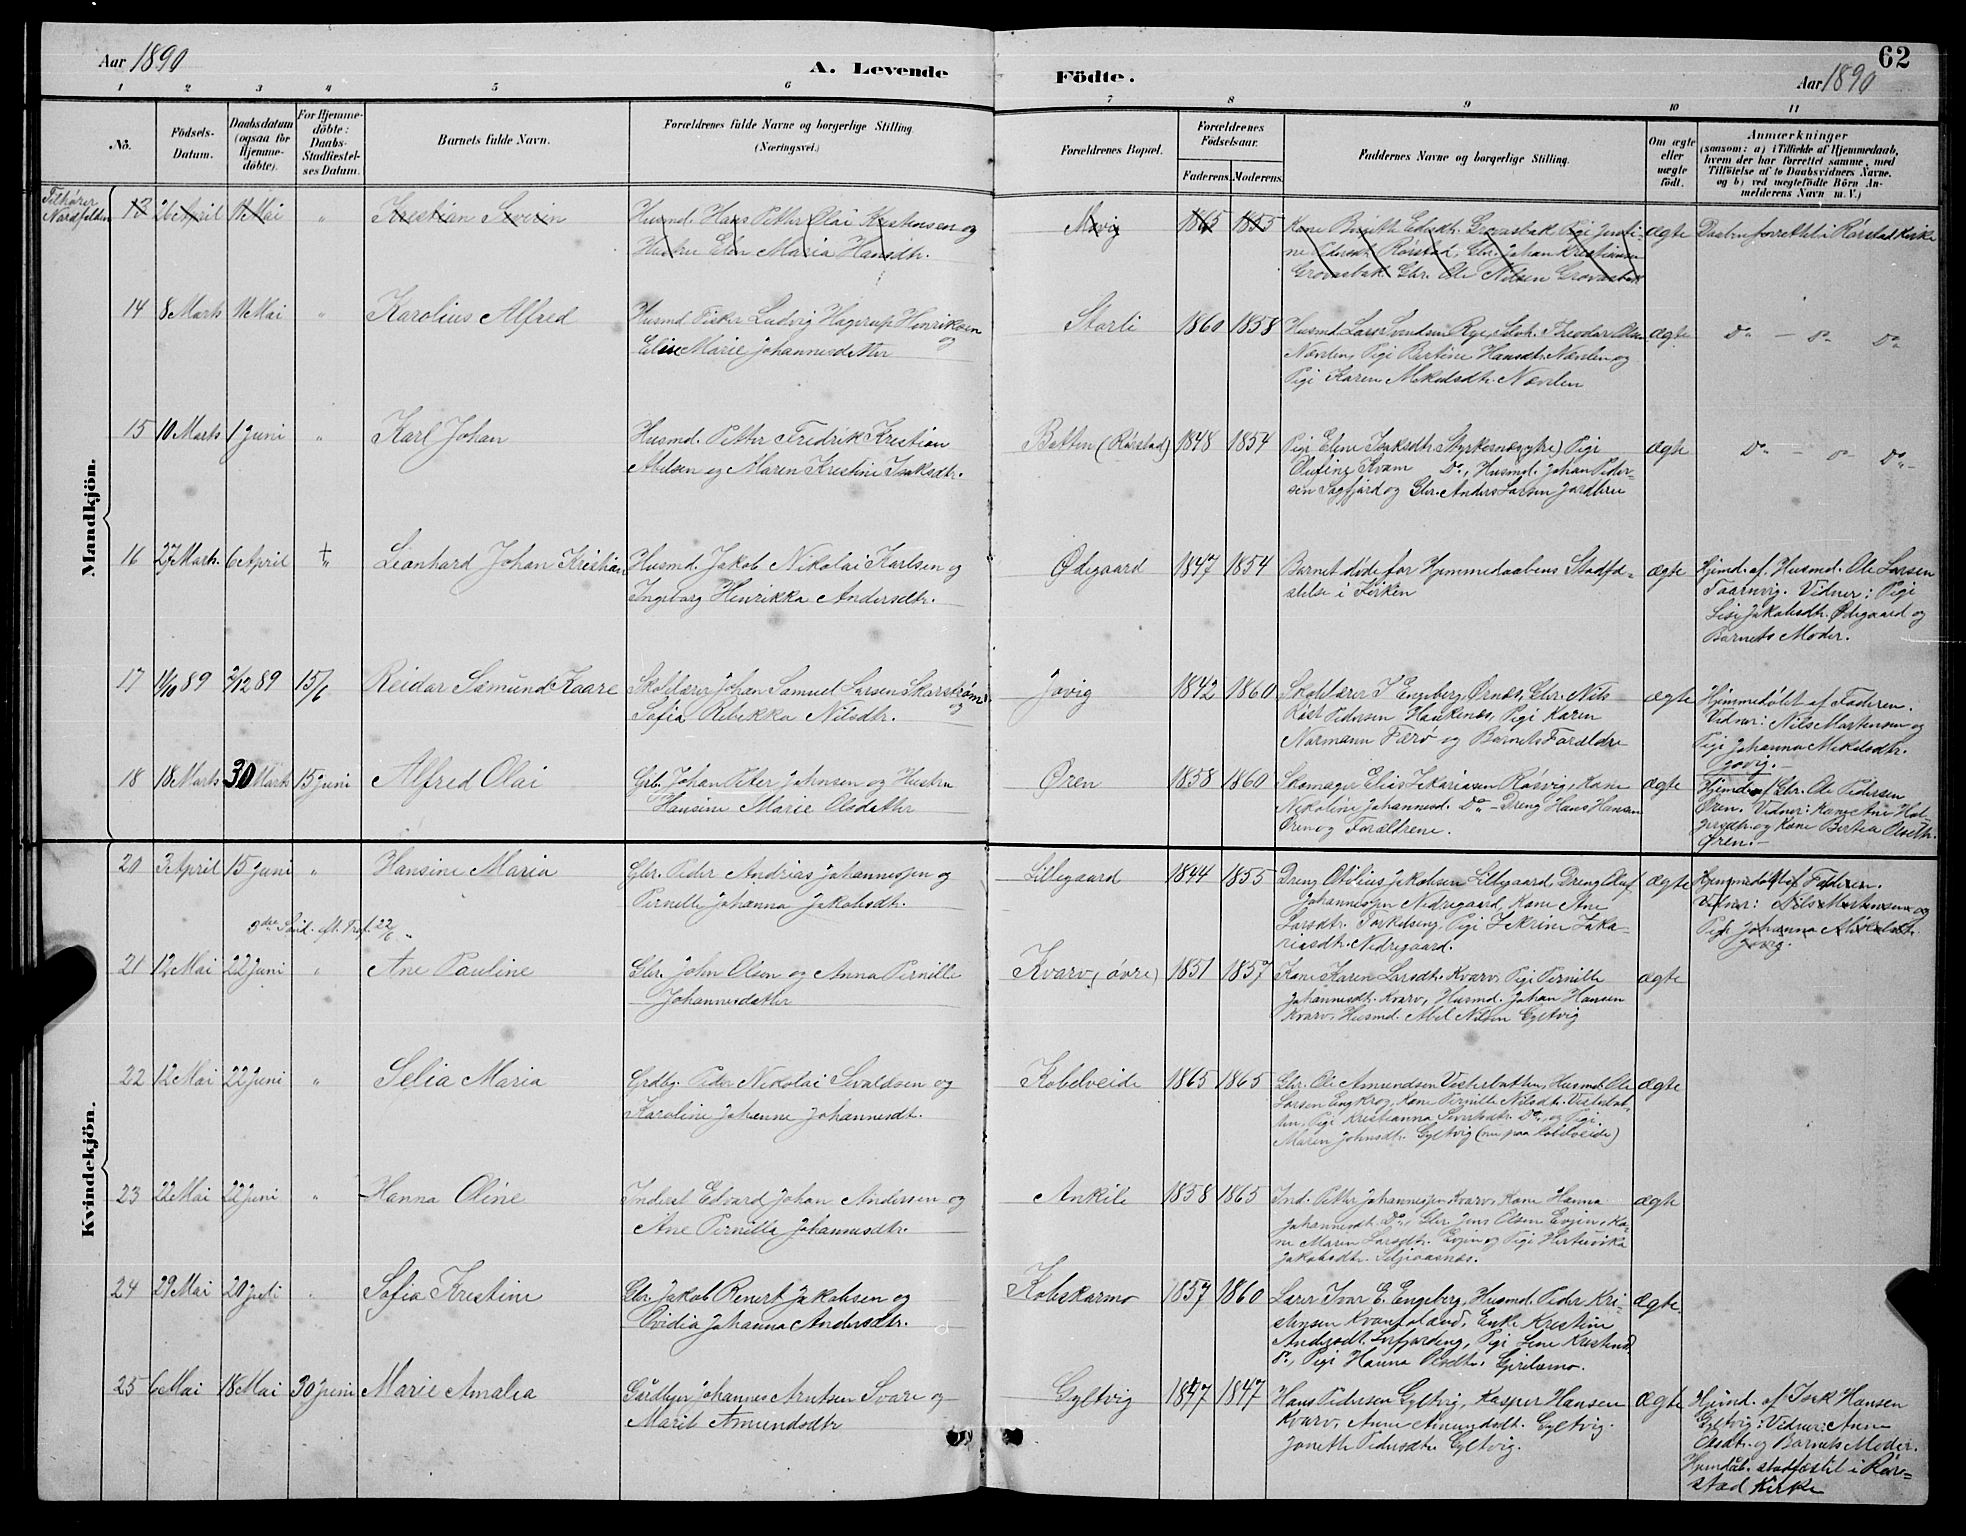 62
Aar 1890
A. Levende Födte.
Aar 1890
1 2 3 4 5 6 7 8 9 10 11
No.
Födsels-
Datum.
Daabsdatum
(ogsaa for
Hjemme-
döbte).
For Hjemme-
döbte:
Daabs-
Stadfæstel-
ses Datum.
Barnets fulde Navn.
Forældrenes fulde Navne og borgerlige Stilling.
(Næringsvei.)
Forældrenes Bopæl.
Forældrenes
Födselsaar.
Faderens. Moderens.
Faddernes Navne og borgerlige Stilling.
Om ægte
eller
uægte
födt.
Anmærkninger
(saasom: a) i Tilfælde af Hjemmedaab,
hvem der har forrettet samme, med
Tilföielse af to Daabsvidners Navne.
og b) ved uægtefödte Börn An-
melderens Navn m. V.)
Mandkjön.
Tilhører
Nordfolden
13 26 April 11 Mai " Kristian Severin
Husmd. Hans Petter Olai Kristensen og
Hustru Elen Maria Hansdtr.
Movig 1865 1855
Kone Birgith Edisdt. Grovasbak Pigi Justi-
ne Pedersdt. Rørstad, Gbr. Johan Kristiansen
Grovasbak Gbr. Ole Nilsen Grovasbak
ægte Daaben forrettet i Rørstad Kirke
14 8 Marts 11 Mai " Karolius Alfred
Husmd. Fisker Ludvig Hagerup Henriksen
og
Elise Marie Johannesdatter
Storli 1860 1858
Husmd. Lars Svendsen Rye, Selvst. Theodor Olsen
Nævelen, Pigi Bertine Hansdt. Nævelen og
Pigi Karen Mikelsdtr. Nævelen
ægte Do - Do Do
15 10 Marts 1 Juni " Karl Johan
Husmd. Petter Fredrik Kristian
Abelsen og Maren Kristine Isaksdtr.
Botten (Rørstad) 1848 1854
Pigi Elene Isaksdtr. Styrkesnæs (ytre) Pigi
Olufine Kvam Do, Husmd. Johan Peder-
sen Sagfjord og Gbr. Anders Larsen Jordbru
ægte Do - Do - Do -
16 27 Marts. 6 April † Leonhard Johan Kristian
Husmd. Jakob Nikolai Karlsen og
Ingeborg Henrikka Andersdtr.
Ødegaard 1847 1854
Barnet døde før Hjemmedaabens Stadfæ-
stelse i Kirken
ægte
Hjmd. af Husmd. Ole Larsen
Taarnvig. Vidner: Pigi
Lise Jakobsdtr. Ødegaard og
Barnets Moder.
17 11/10 89 2/12 89 15/6 Reidar Sæmund Kaare
Skolelærer Johan Samuel Larsen Skarstrøm
og
Sofia Rebekka Nilsdtr.
Jovig 1842 1860
Skolelærer I. Engeberg Ørnæs, Gbr. Nils
Røst Pedersen Haukenæs, Pigi Karen
Normann Færø og Barnets Forældre
ægte
Hjemmedøbt af Faderen.
Vidner: Nils Mortensen og
Pigi Johanna Mikelsdtr.
Jovig.
18 18 Marts 30 Marts 15 Juni Alfred Olai
Grb. Johan Peter Johnsen og Hustru
Hansine Marie Olsdatter
Øren 1858 1860
Skomager Elias Zakariasen Røsvig, Kone
Nikoline Johannesd. Do - Dreng Hans Hansen
Øren og Forældrene.
ægte
Hjemd. af Gbr. Ole Pedersen
Øren. Vidner: Kone Ane Hol-
gersdtr. og Kone Bertea Olsdtr.
Øren.
Kvindekjön.
20 3 April 15 Juni " Hansine Maria
Gbr. Peder Andrias Johannessen og
Pernille Johanna Jakobsdtr.
Lillegaard 1844 1855
Dreng Otilius Jakobsen Lillegaard, Dreng Oluf
Johannessen Nedregaard, Kone Ane
Larsdtr. Torkelseng, Pigi Zekrine Zaka-
riasdtr. Nedregaard.
ægte
Hjemmedøbt af Faderen.
Vidner: Nils Mortensen og
Pigi Johanna Mikelsdtr.
Jovig.
3die Sønd. eft. Tref. 22/6 "
21 12 Mai 22 Juni " Ane Pauline
Gbr. John Olsen og Anna Pernille
Johannesdatter
Kvarv (øvre) 1851 1857
Kone Karen Larsdt. Kvarv, Pigi Pernille
Johannesdt. Kvarv, Husmd. Johan Hansen
Kvarv, Husmd. Abel Nilsen Gyltvig
ægte
22 12 Mai 22 Juni " Selia Maria
Grdbg. Peder Nikolai Sevaldsen og
Karoline Johanne Johannesdt.
Kobelveide 1865 1865
Gbr. Ole Amundsen Vesterbotten, Husmd. Ole
Larsen Engkrog, Kone Pernille Nilsdt. Vesterbot-
ten, Pigi Kristianna Do, og Pigi
Maren Johnsdt. Gyltvig (nu paa Kobelveide)
ægte
23 22 Mai 22 Juni " Hanna Oline
Inderst Edvard Johan Andersen og
Ane Pernilla Johannesdtr.
Ankile 1858 1865
Ind. Petter Johannessen Kvarv, Kone Hanna
Johannesdt. Do, Gbr. Jens Olsen Evjen, Ko-
ne Maren Larsdt. Evjen og Pigi
Jakobsdtr.
ægte
24 29 Mai 20 Juli " Sofia Kristine
Gbr. Jakob Renert Jakobsen og
Ovidia Johanna Andersdtr.
Kobskarmo 1857 1860
Lærer Ivar E. Engeberg, Husmd. Peder Kri-
stensen Kvantoland, Enke Kristine
Andersdt. Lerfjordeng, Pigi Lene Kristensd.
Do, Pigi Hanna Olsdtr.
ægte.
25 6 Mai 18 Mai 30 Juni Marie Amalia
Gårdbger Johannes Arntsen Svare og
Marit Amundsdtr
Gyltvig 1847 1847
Hans Pedersen Gyltvig, Kasper Hansen
Kvarv, Anne Amundsdt. Gyltvig.
Joneth Pedersdtr. Gyltvig.
ægte
Hjmd. af Isak Hansen
Gyltvig: Vidner: Anne
Olsdtr. og Barnets Moder.
Hjemdåb. stadfæstet i Rør=
stad Kirke